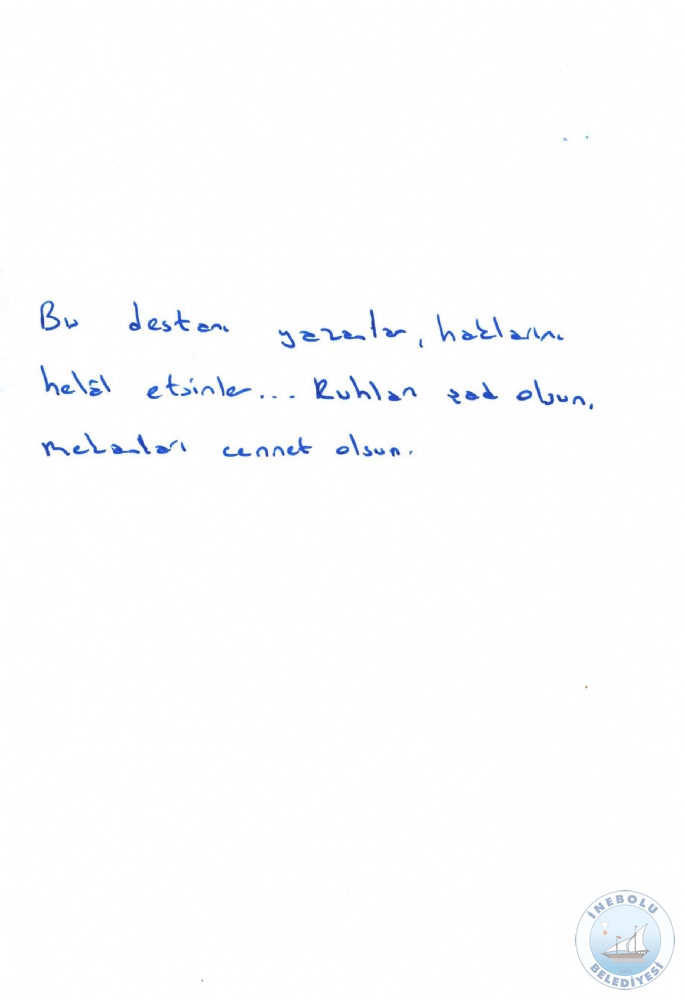 Bu destanı yazanlar, haklarını
helâl etsinler... Ruhları şad olsun,
mekanları cennet olsun.
İNEBOLU
BELEDİYESİ